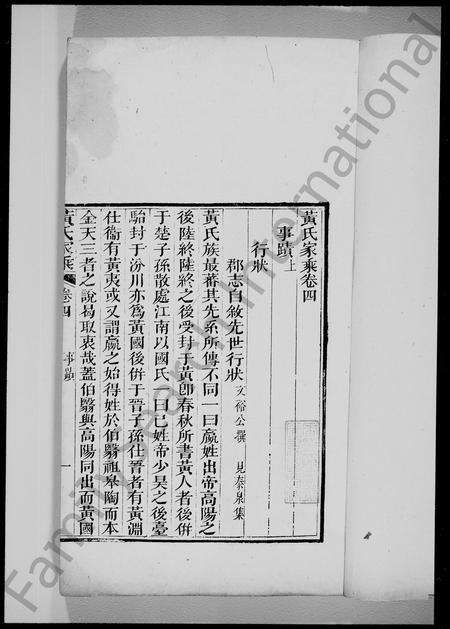 黃氏家乘卷四
事蹟上
行狀
郡志自敘先世行狀 文裕公撰 見泰泉集
黃氏族最蕃其先系所傳不同一曰嬴姓出帝高陽之
後陸終陸終之後受封于黃即春秋所書黃人者後併
于楚子孫散處江南以國氏一曰己姓帝少昊之後臺
駘封于汾川亦爲黃國後併于晉子孫仕晉者有黃淵
仕衞有黃夷或又謂嬴之始得姓於伯翳祖皋陶而本
金天三者之說曷取衷哉蓋伯翳與高陽同出而黃國
黃氏家乘 卷四 事蹟 一
FamilySearch International